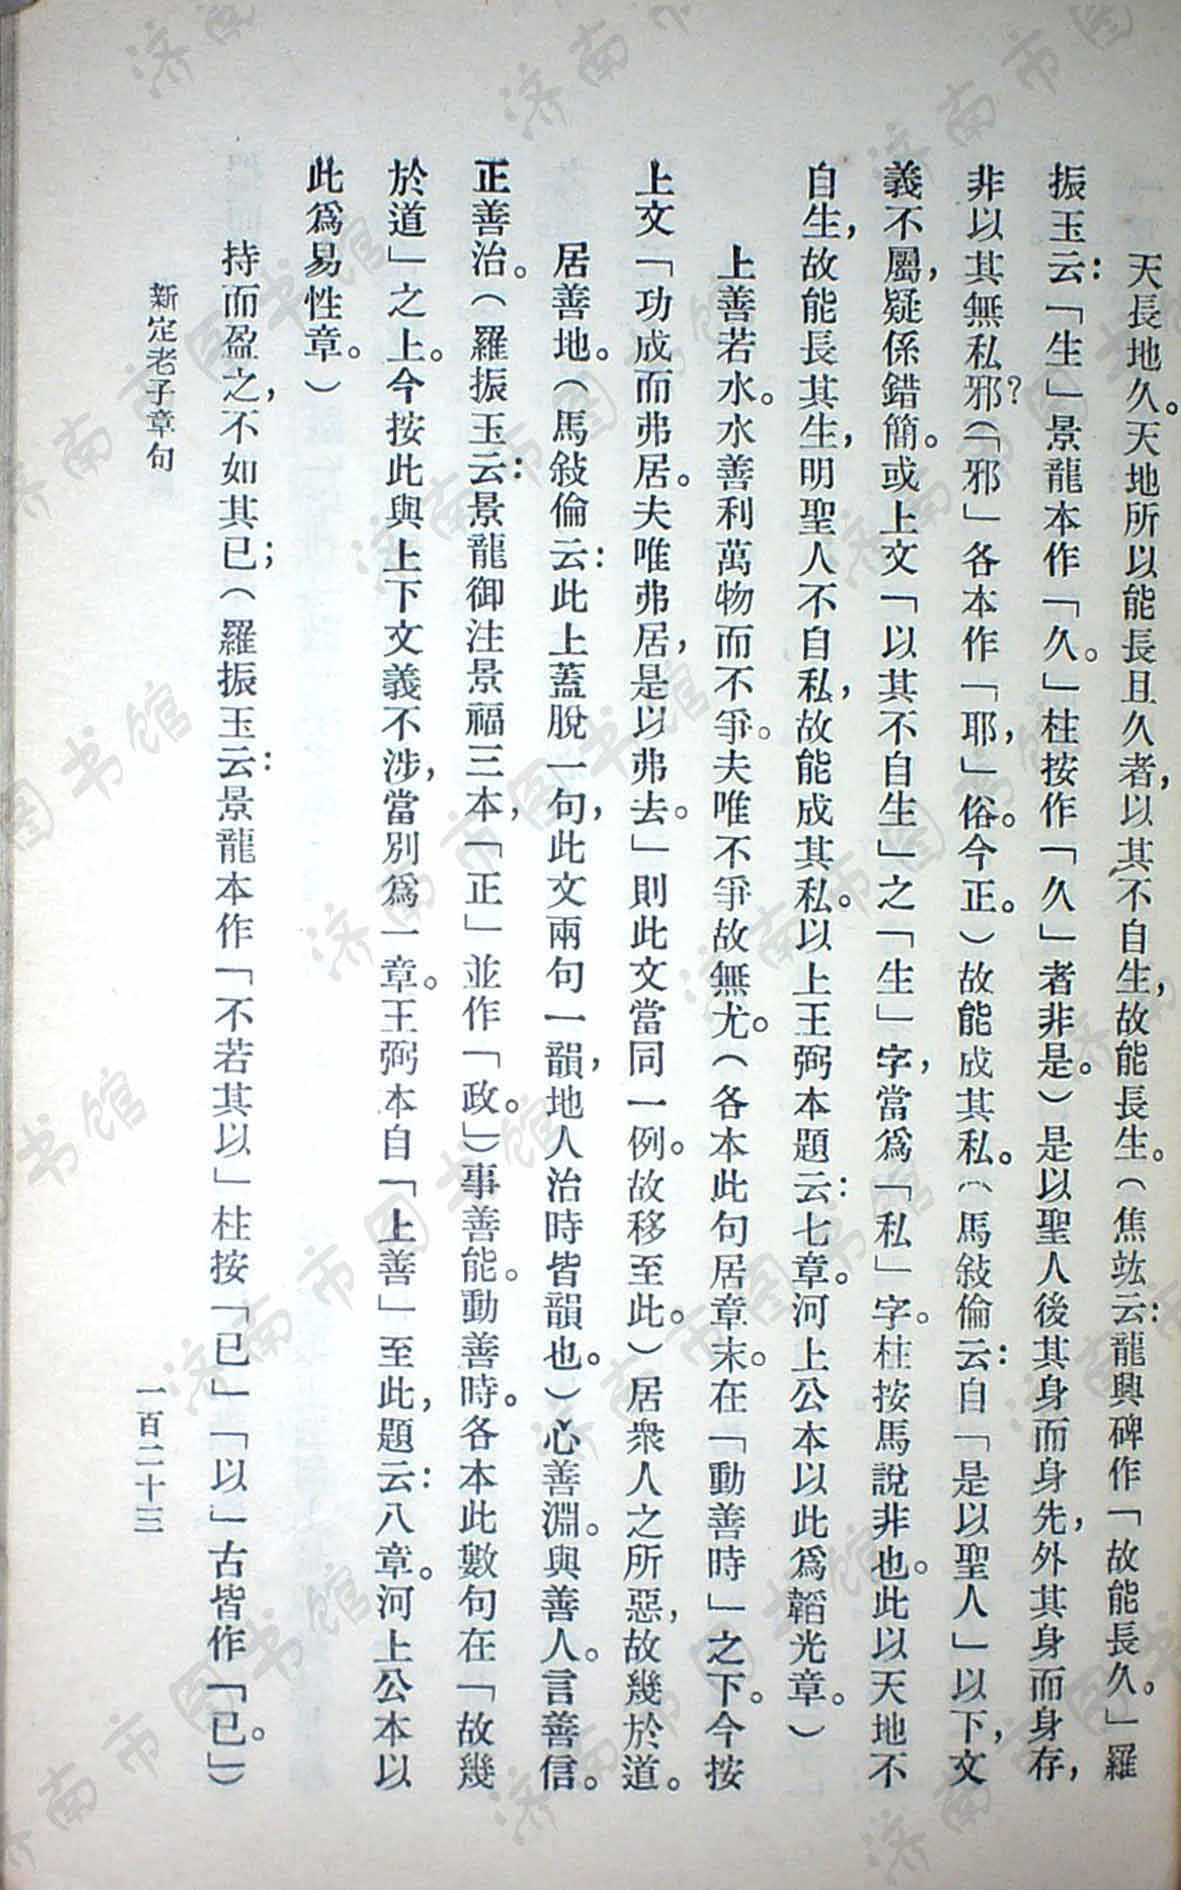 天長地久。天地所以能長且久者，以其不自生，故能長生。（焦竑云：龍興碑作「故能長久。」羅
振玉云：「生」景龍本作「久。」柱按作「久」者非是。）是以聖人後其身而身先，外其身而身存，
非以其無私邪？（「邪」各本作「耶，」俗。今正。）故能成其私。（馬敍倫云：自「是以聖人」以下，文
義不屬，疑係錯簡。或上文「以其不自生」之「生」字，當爲「私」字。柱按馬說非也。此以天地不
自生，故能長其生，明聖人不自私，故能成其私。以上王弼本題云：七章。河上公本以此爲韜光章。）
上善若水。水善利萬物而不爭。夫唯不爭故無尤。（各本此句居章末。在「動善時」之下。今按
上文「功成而弗居。夫唯弗居，是以弗去。」則此文當同一例。故移至此。）居衆人之所惡，故幾於道。
居善地。（馬敍倫云：此上蓋脫一句，此文兩句一韻，地人治時皆韻也。）心善淵。與善人。言善信。
正善治。（羅振玉云：景龍御注景福三本，「正」並作「政。」）事善能。動善時。各本此數句在「故幾
於道」之上。今按此與上下文義不涉，當別爲一章。王弼本自「上善」至此，題云：八章。河上公本以
此爲易性章。）
持而盈之，不如其已；（羅振玉云：景龍本作「不若其以」柱按「已」「以」古皆作「已。」）
新定老子章句
一百二十三
济南市图书馆